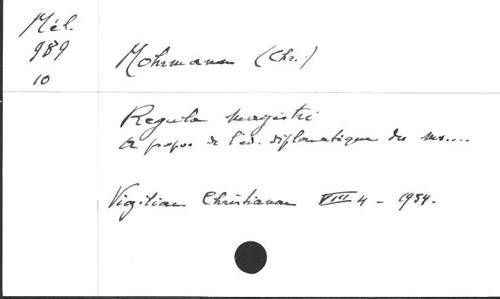 Mél.
989
10
Mohrmann (Chr.)
Regula magistri
A propos de l'éd. diplomatique du ms....
Vigiliae Christianae VIII 4 - 1954.